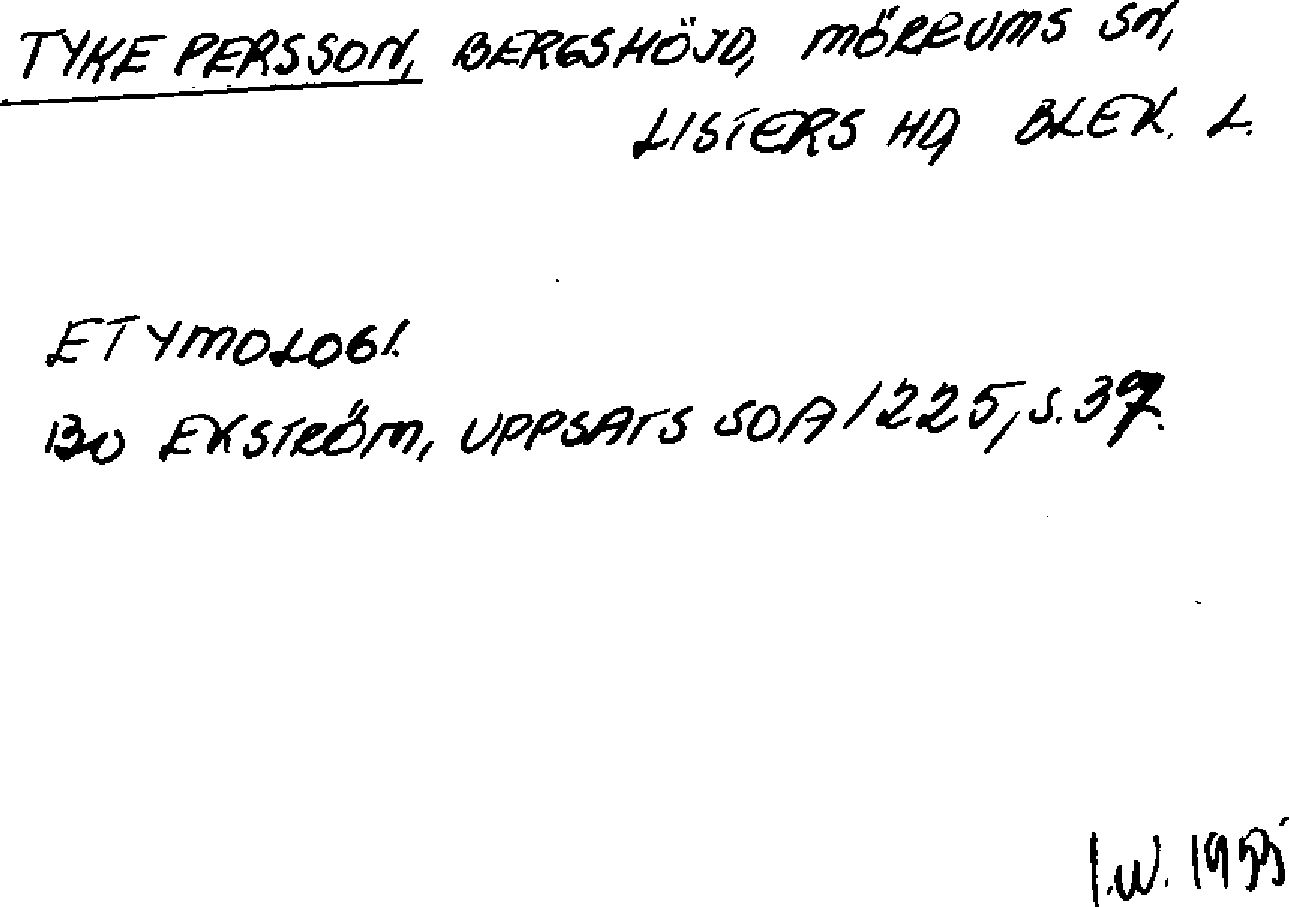 TYKE PERSSON, BERGSHÖJD, MÖRRUMS SN,
LISTERS HD, BLEK. L.
ETYMOLOGI.
BO EKSTRÖM, UPPSATS SOA 1225, s.
I.W.